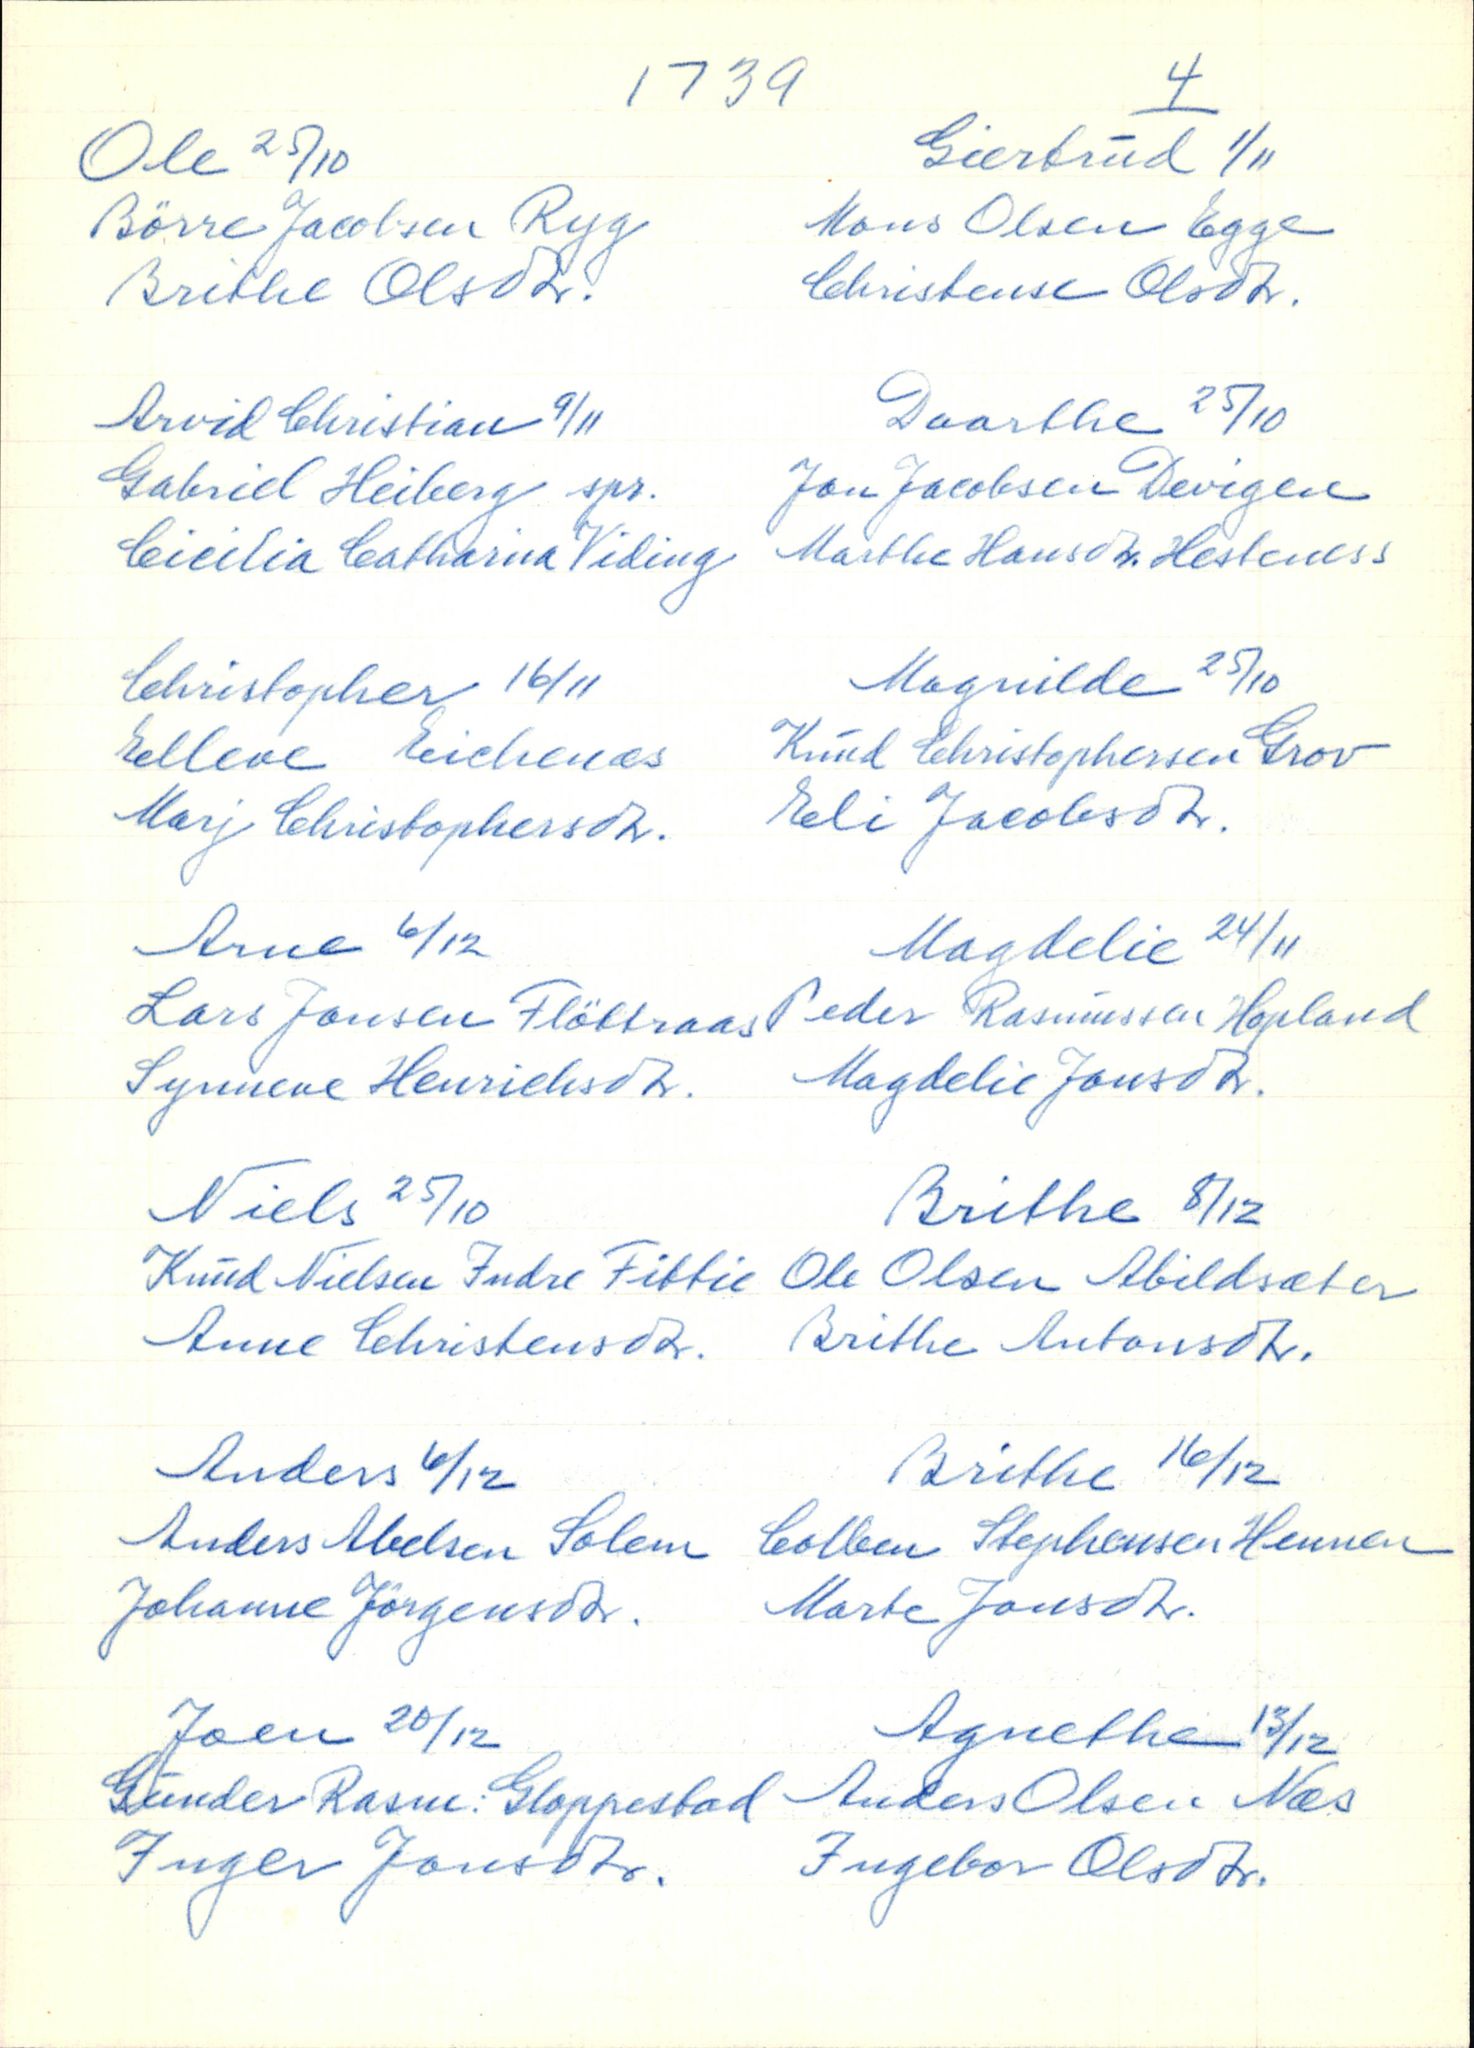 1739
4
Ole 25/10
Börre Jacobsen Ryg
Brithe Olsdtr.
Giertrud 1/11
Mons Olsen Egge
Christense Olsdtr.
Arvid Christian 9/11
Gabriel Heiberg spr.
Cicilia Catharina Viding
Daarthe 25/10
Jon Jacobsen Devigen
Marthe Hansdtr. Hesteness
Christopher 16/11
Elleve Eichenæs
Marj Christophersdtr.
Magnilde 25/10
Knud Christophersen Grov
Eli Jacobsdtr.
Arne 6/12
Lars Jonsen Flöttraas
Synneve Henrichsdtr.
Magdelie 24/11
Peder Rasmussen Hopland
Magdelie Jonsdtr.
Niels 25/10
Knud Nielsen Indre Fittie
Anne Christensdtr.
Brithe 8/12
Ole Olsen Abildsæter
Brithe Antonsdtr.
Anders 6/12
Anders Abelsen Solem
Johanne Jörgensdtr.
Brithe 16/12
Colben Stephensen Hennen
Marte Jonsdtr.
Joen 20/12
Gunder Rasm: Gloppestad
Inger Jonsdtr.
Agnethe 13/12
Anders Olsen Næs
Ingebor Olsdtr.